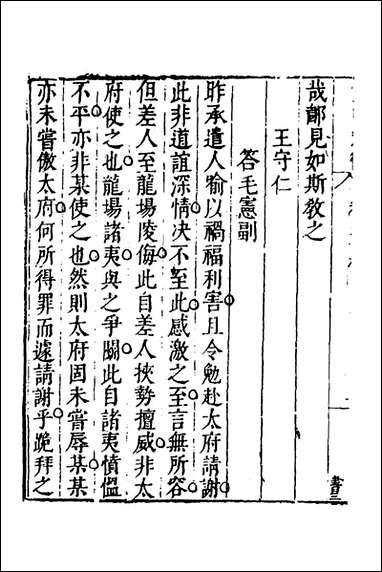 哉鄙見如斯敎之
王守仁
答毛憲副
昨承遣人喻以禍福利害且令勉赴太府請謝
此非道誼深情决不至此感激之至言無所容
但差人至龍場陵侮此自差人挾勢擅威非太
府使之也龍場諸夷與之爭鬭此自諸夷憤慍
不平亦非某使之也然則太府固未嘗辱某某
亦未嘗傲太府何所得罪而遽請謝乎跪拜之
書三